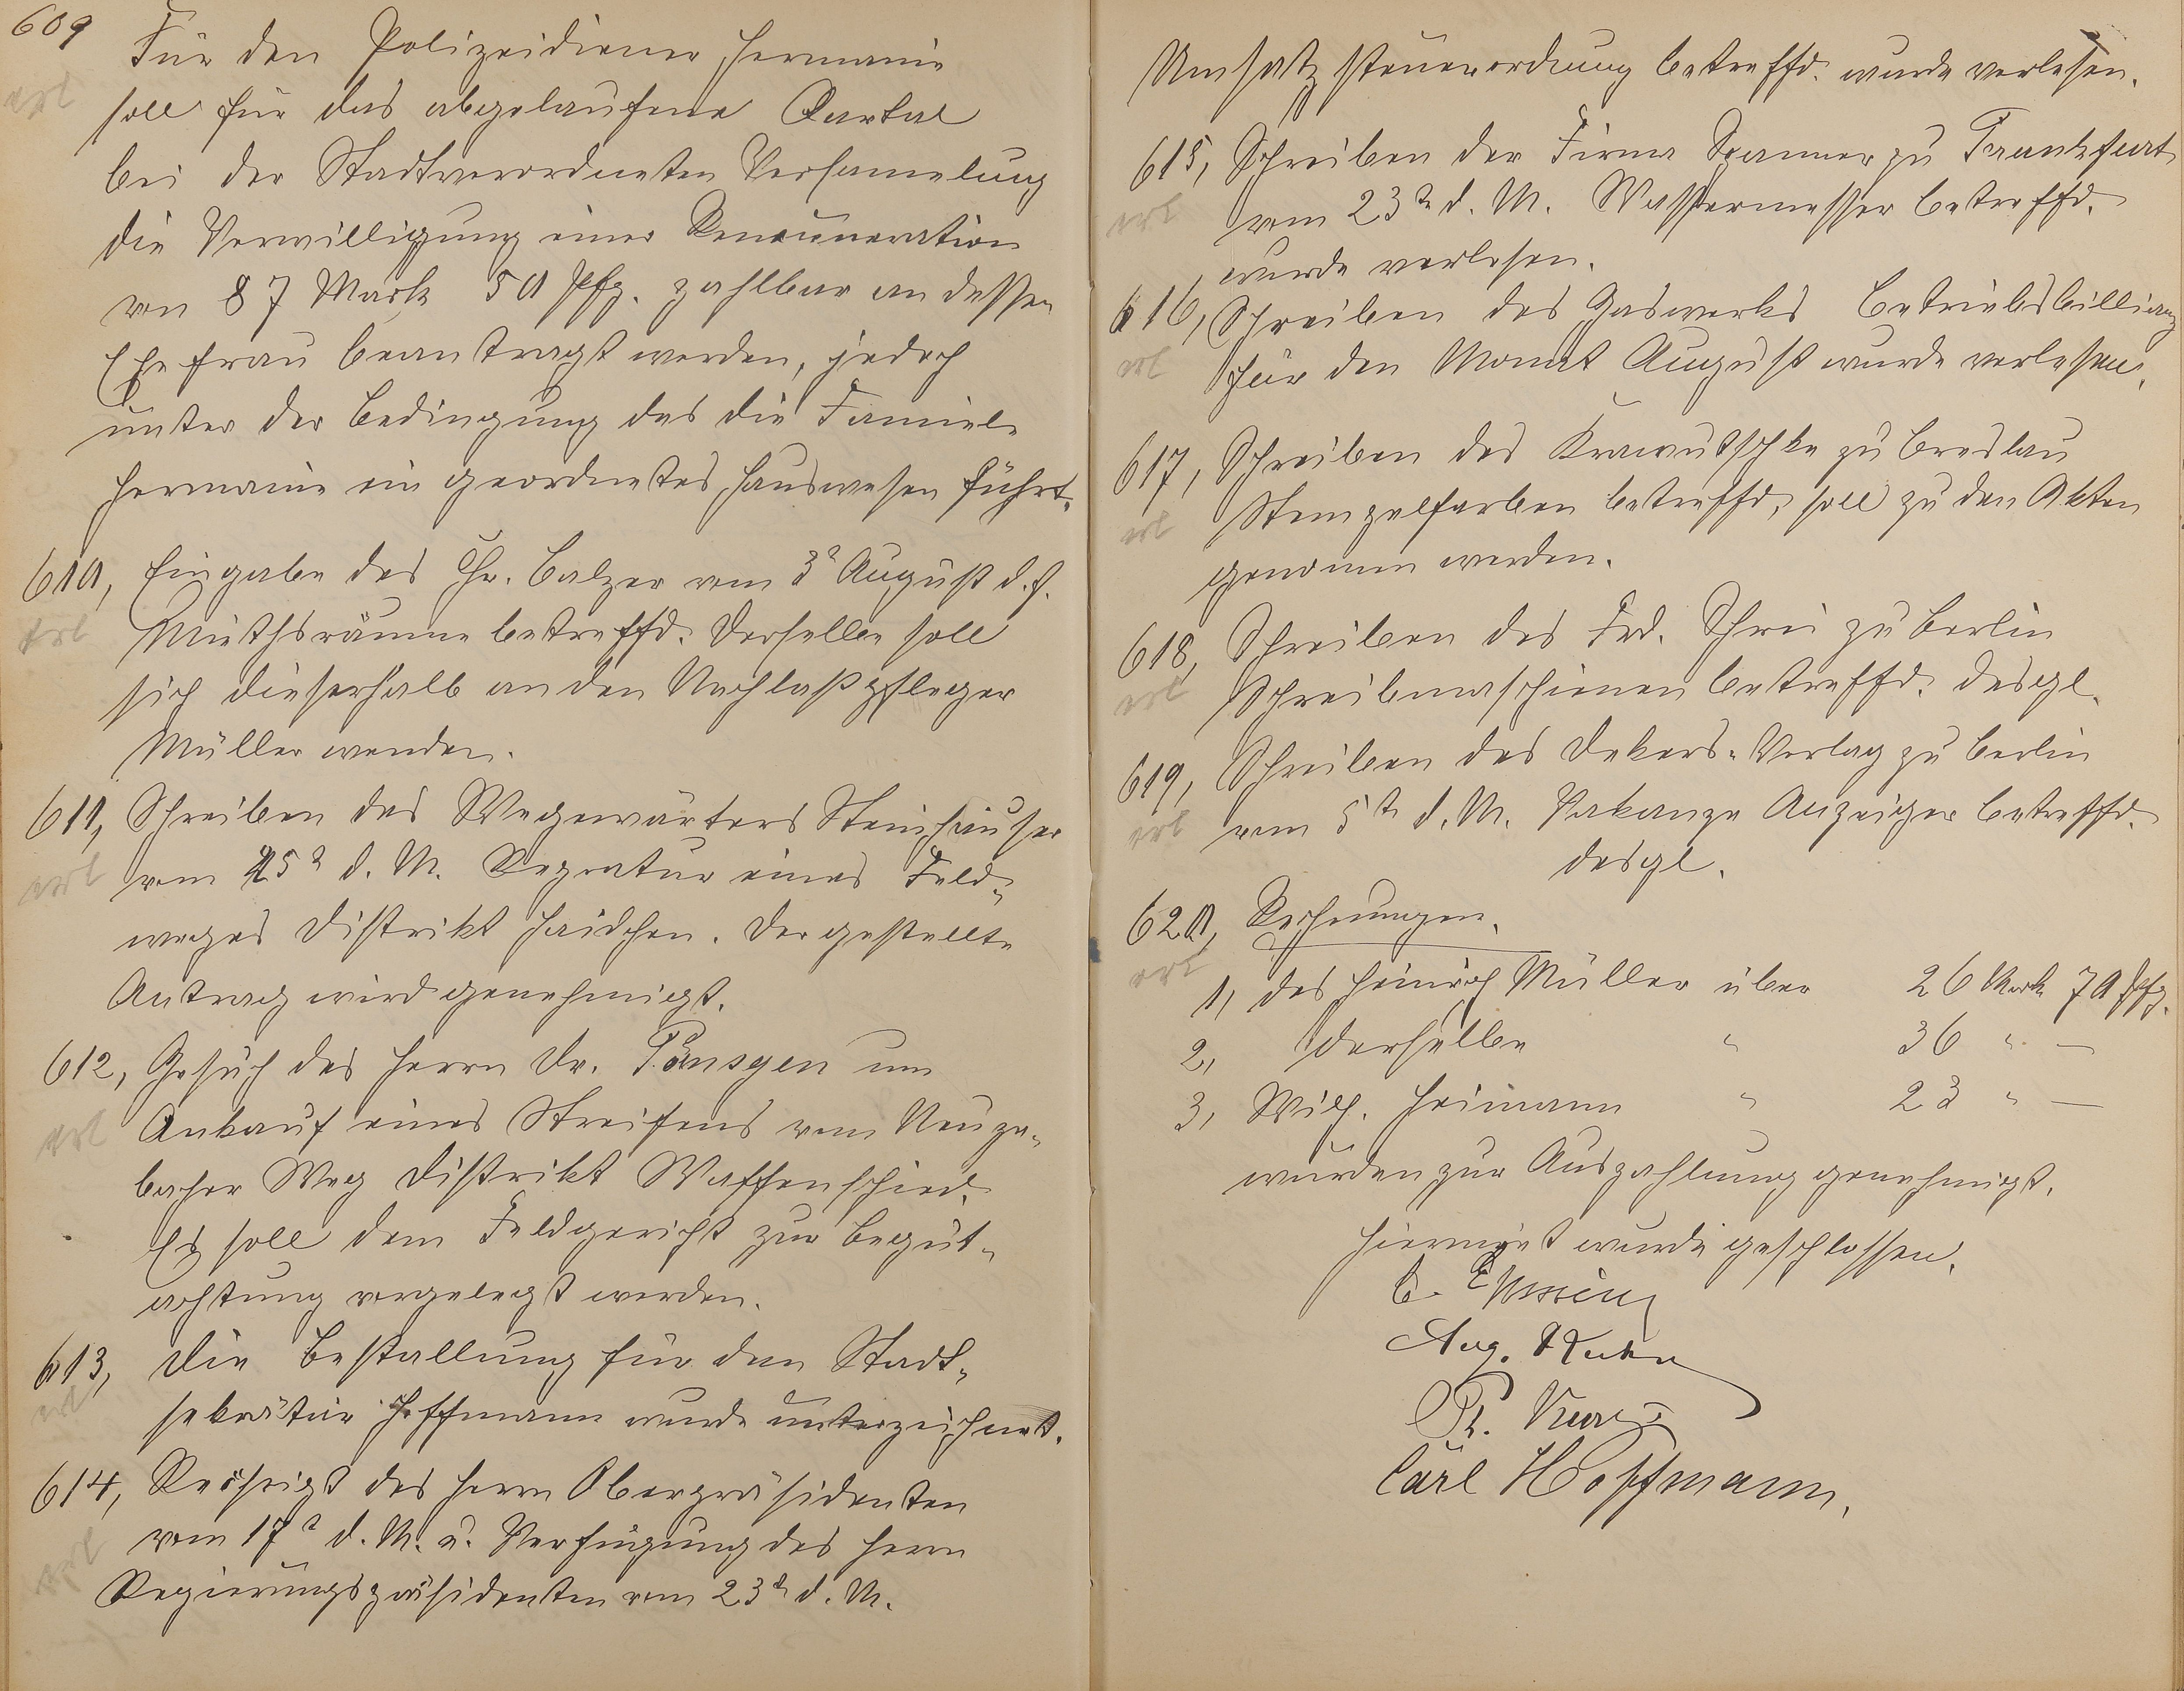 609 Für den Polizeidiener Hermanie
erl soll für das abgelaufene Qartal
bei der Stadtverordneten Versamelung
die Verwilligung einer Renumeration
von 87 Mark 50 Pfg. zahlbar an dessen
Ehefrau beantragt werden, jedoch
unter der Bedingung das die Famiele
Hermanie ein geordnetes Hauswesen führt.
610, Eingabe des Chr. Balzer vom 3t August d. J.
erl Miethsräume betreffd. Derselbe soll
sich dieserhalb an den Nachlaßpfleger
Müller wenden.
611, Schreiben des Wegewärters Steinhäuser
erl vom 25t d. M. Repratur eines Feld-
weges Distrikt Haidchen. Der gestellte
Antrag wird genehmigt.
612, Gesuch des Herrn Dr. Pönsgen um
erl Ankauf eines Streifens vom Neuze-
bacher Weg Distrikt Waffenschied.
Es soll dem Feldgericht zur Begut-
achtung vorgelegt werden.
613, Die Bestallung für den Stadt-
erl sekretär Hoffmann wurde unterzeichnet.
614, Rescheigt des Herrn Oberpräsidenten
erl vom 17t d. M. u. Verfügung des Herrn
Regierungspräsidenten vom 23t d. M.
Umsatzsteuerordnung betreffd. wurde verlesen.
615, Schreiben der Firma Spanner zu Frankfurt
erl vom 23t d. M. Wassermesser betreffd.
wurde verlesen.
616, Schreiben des Gaswerks Betriebsbillianz
erl für den Monat August wurde verlesen.
617, Schreiben des Krawutschke zu Breslau
erl Stempelfarben betreffd, soll zu den Akten
genomen werden.
618, Schreiben des Frd. Schrei zu Berlin
erl Schreibmaschienen betreffd. desgl.
619, Schreiben des Dekers-Verlag zu Berlin
erl vom 5t d. M. Vakanze Anzeiger betreffd.
desgl.
620, Rechnungen.
erl 1, des Heinrich Müller über 26 Mark 70 Pfg.
2, derselbe " 36 " —
3, Wilh. Heimann " 23 " —
wurden zur Auszahlung genehmigt.
Hiermiet wurde geschlossen.
Aug. Kuhn
Carl Hoffmann.